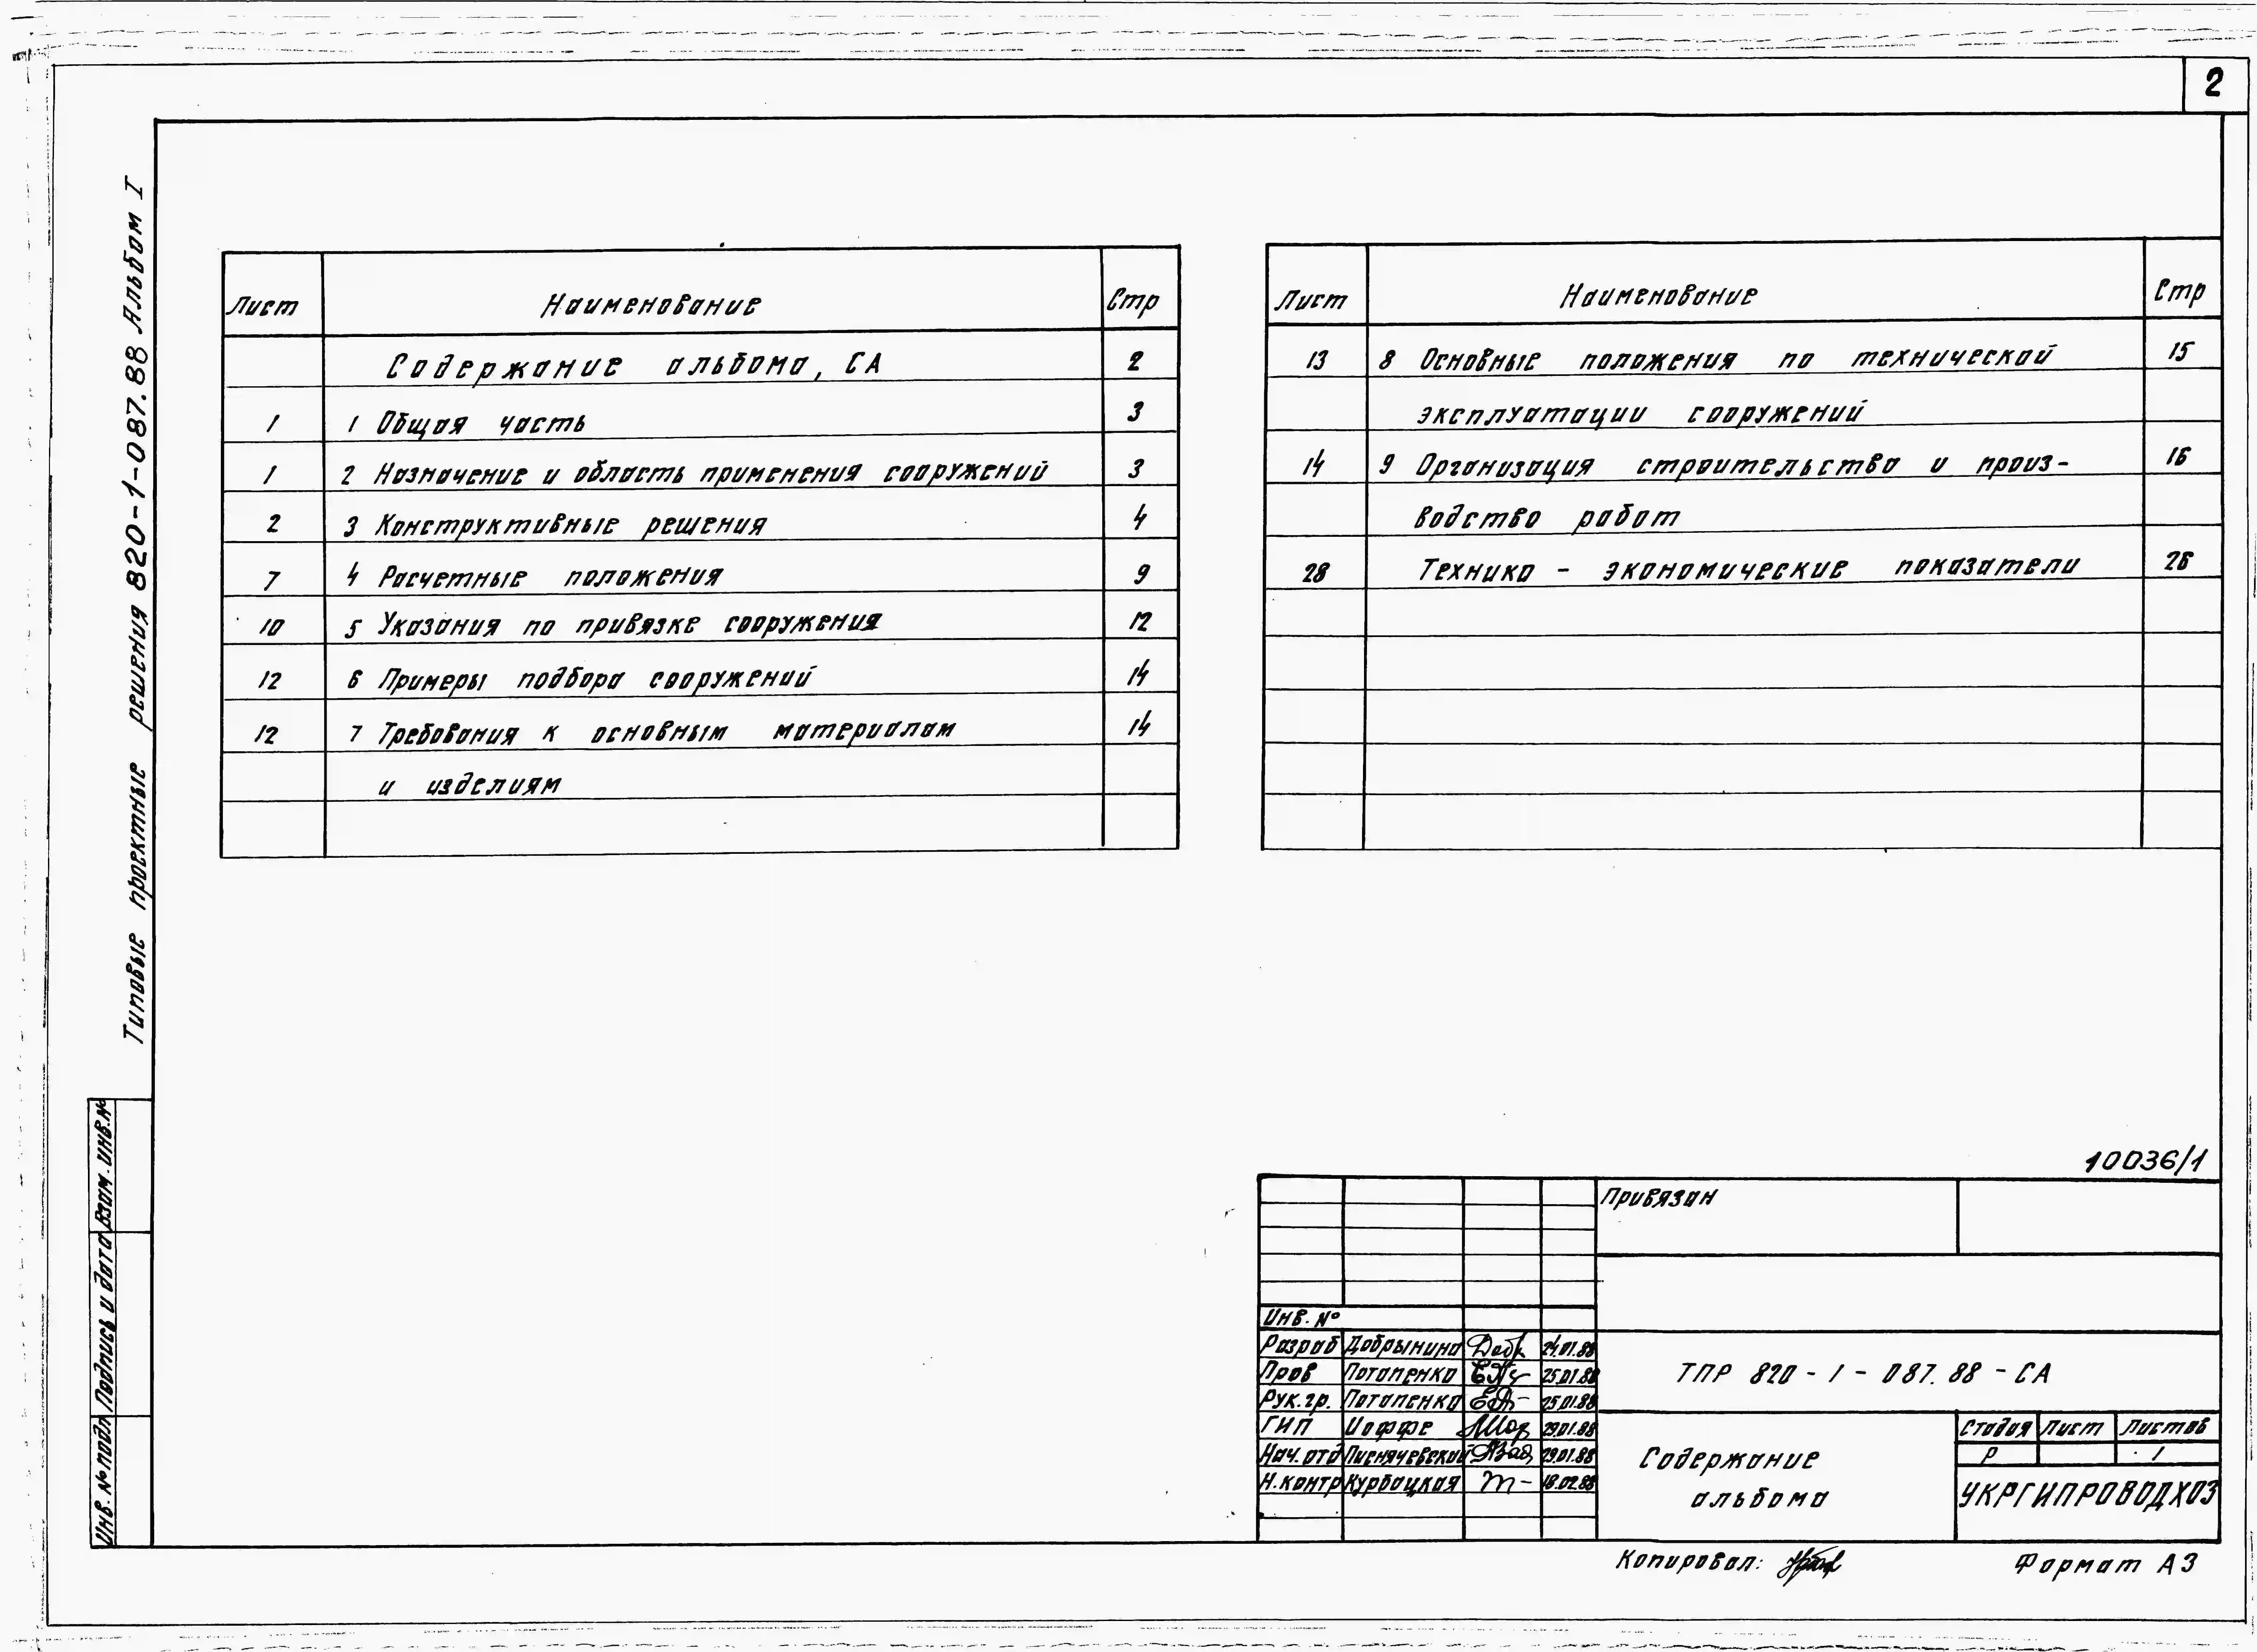 2
Типовые проектные решения 820-1-087.88 Альбом I
Лист Наименование Стр
Содержание альбома, СА 2
1 1 Общая часть 3
1 2 Назначение и область применения сооружений 3
2 3 Конструктивные решения 4
7 4 Расчетные положения 9
10 5 Указания по привязке сооружения 12
12 6 Примеры подбора сооружений 14
12 7 Требования к основным материалам 14
и изделиям
Лист Наименование Стр
13 8 Основные положения по технической 15
эксплуатации сооружений
14 9 Организация строительства и произ- 16
водство работ
28 Технико - экономические показатели 26
Инв. № подл Подпись и дата Взам. инв. №
10036/1
Привязан
Инв. №
Разраб Добрынина 24.01.88
Пров Потапенко 25.01.88
Рук. гр. Потапенко 25.01.88
ГИП Иоффе 29.01.88
Нач. отд 29.01.88
Н. контр Курбацкая 18.02.88
ТПР 820 - 1 - 087. 88 - СА
Содержание
альбома
Стадия Лист Листов
Р 1
УКРГИПРОВОДХОЗ
Копировал:
Формат А3